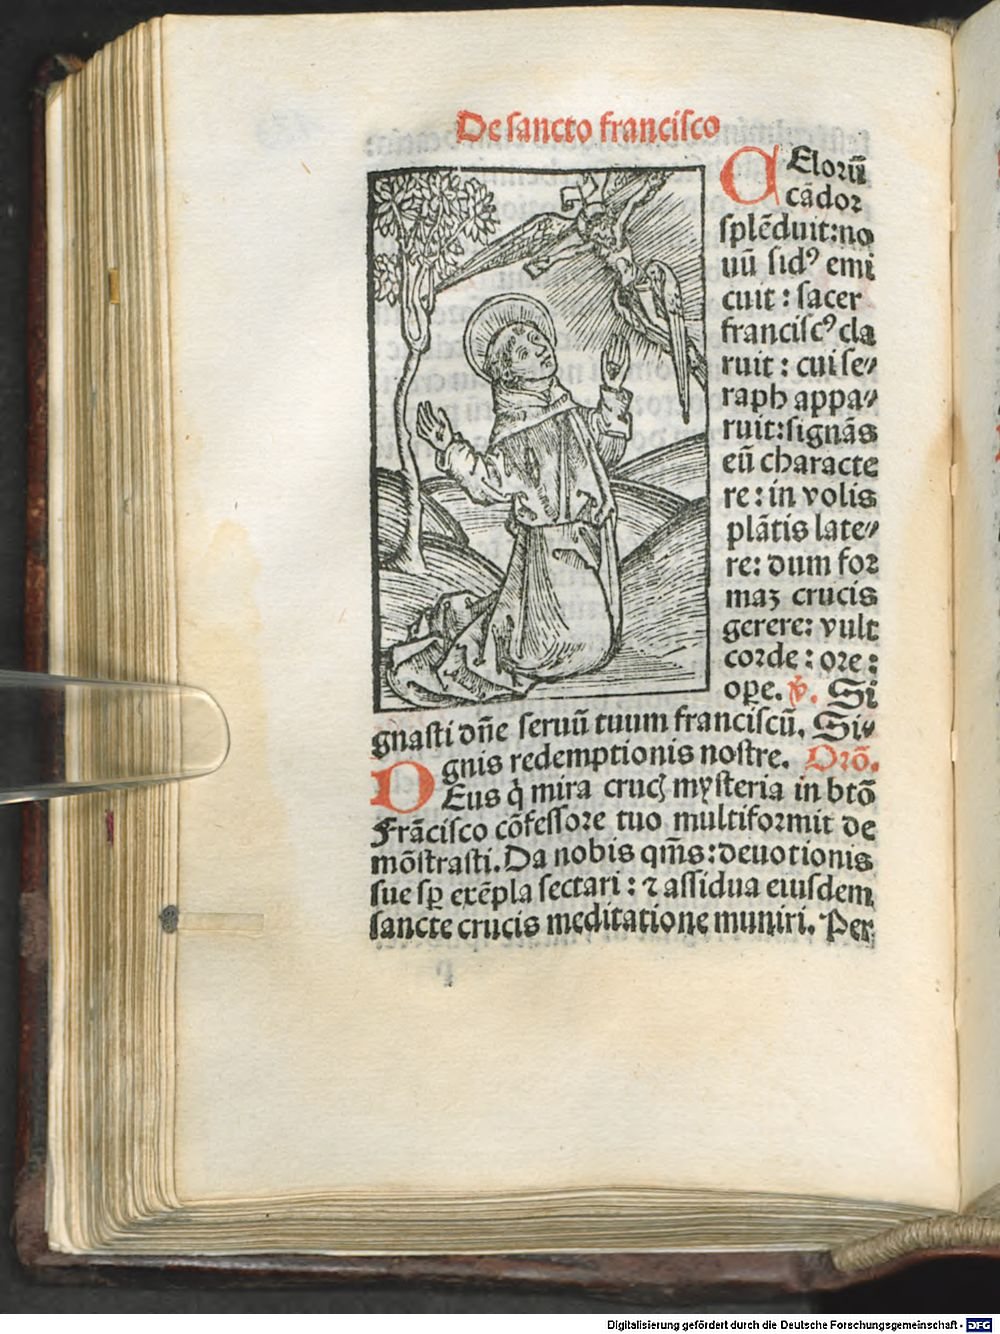 De sancto francisco
CElorū
cādor
splēduit:no
uū sidꝰ emi
cuit : sacer
franciscꝰ cla
ruit : cui se⸗
raph appa⸗
ruit:signās
eū characte
re : in volis
plātis late⸗
re: dum for
maꝫ crucis
gerere: vult
corde : ore :
oꝑe. ℣. Si
gnasti dn̄e seruū tuum franciscū. Si⸗
gnis redemptionis nostre. Orō.
DEus q̇ mira crucꝭ mysteria in btō
Frācisco cōfessore tuo multiformit de
mōstrasti. Da nobis qm̄s: deuotionis
sue sꝑ exēpla sectari : ⁊ assidua eiusdem
sancte crucis meditatione muniri. Per
Digitalisierung gefördert durch die Deutsche Forschungsgemeinschaft - DFG